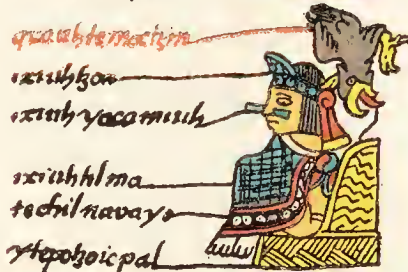 quauhtemoctzin
ixiuhtzon
ixiuhyacamiuh
ixiuhtilma
techilnavayo
ytepotzoicpal